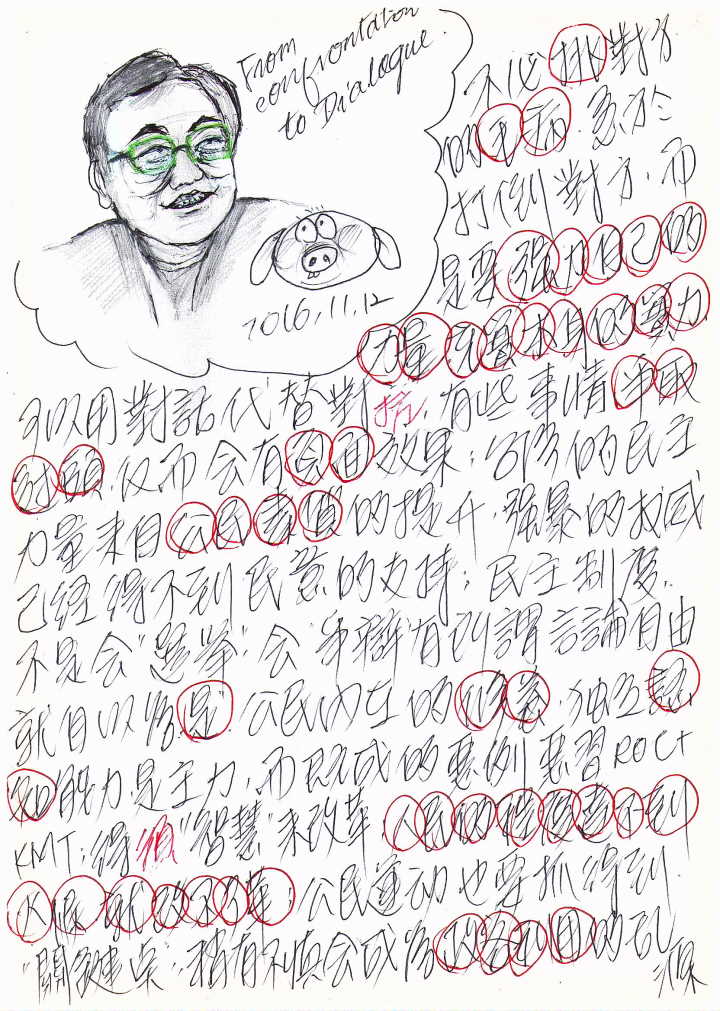 From
confrontation
to Dialogue.
2016.11.12
不必排對方
的毛病.急於
打倒對方.而
是要强力自己的
力量.充實本身的實力
可以用對話代替對抗.有些事情爭取
討願.反而会有負面效果;台灣的民主
力量來自公民素質的提升.强暴的权威
已経得不到民意的支持;民主制度.
不是会"選举"会"爭辯"有所謂言論自由
就自以為是.公民内在的修養.独立認
知能力是主力.而既成的惡例惡習ROC+
KMT;得須"智慧"來改革.人民的程度達不到
水準.就改不了革;公民運动也要抓得到.
"關鍵桌".稍有不慎会成為政客利用的乱源